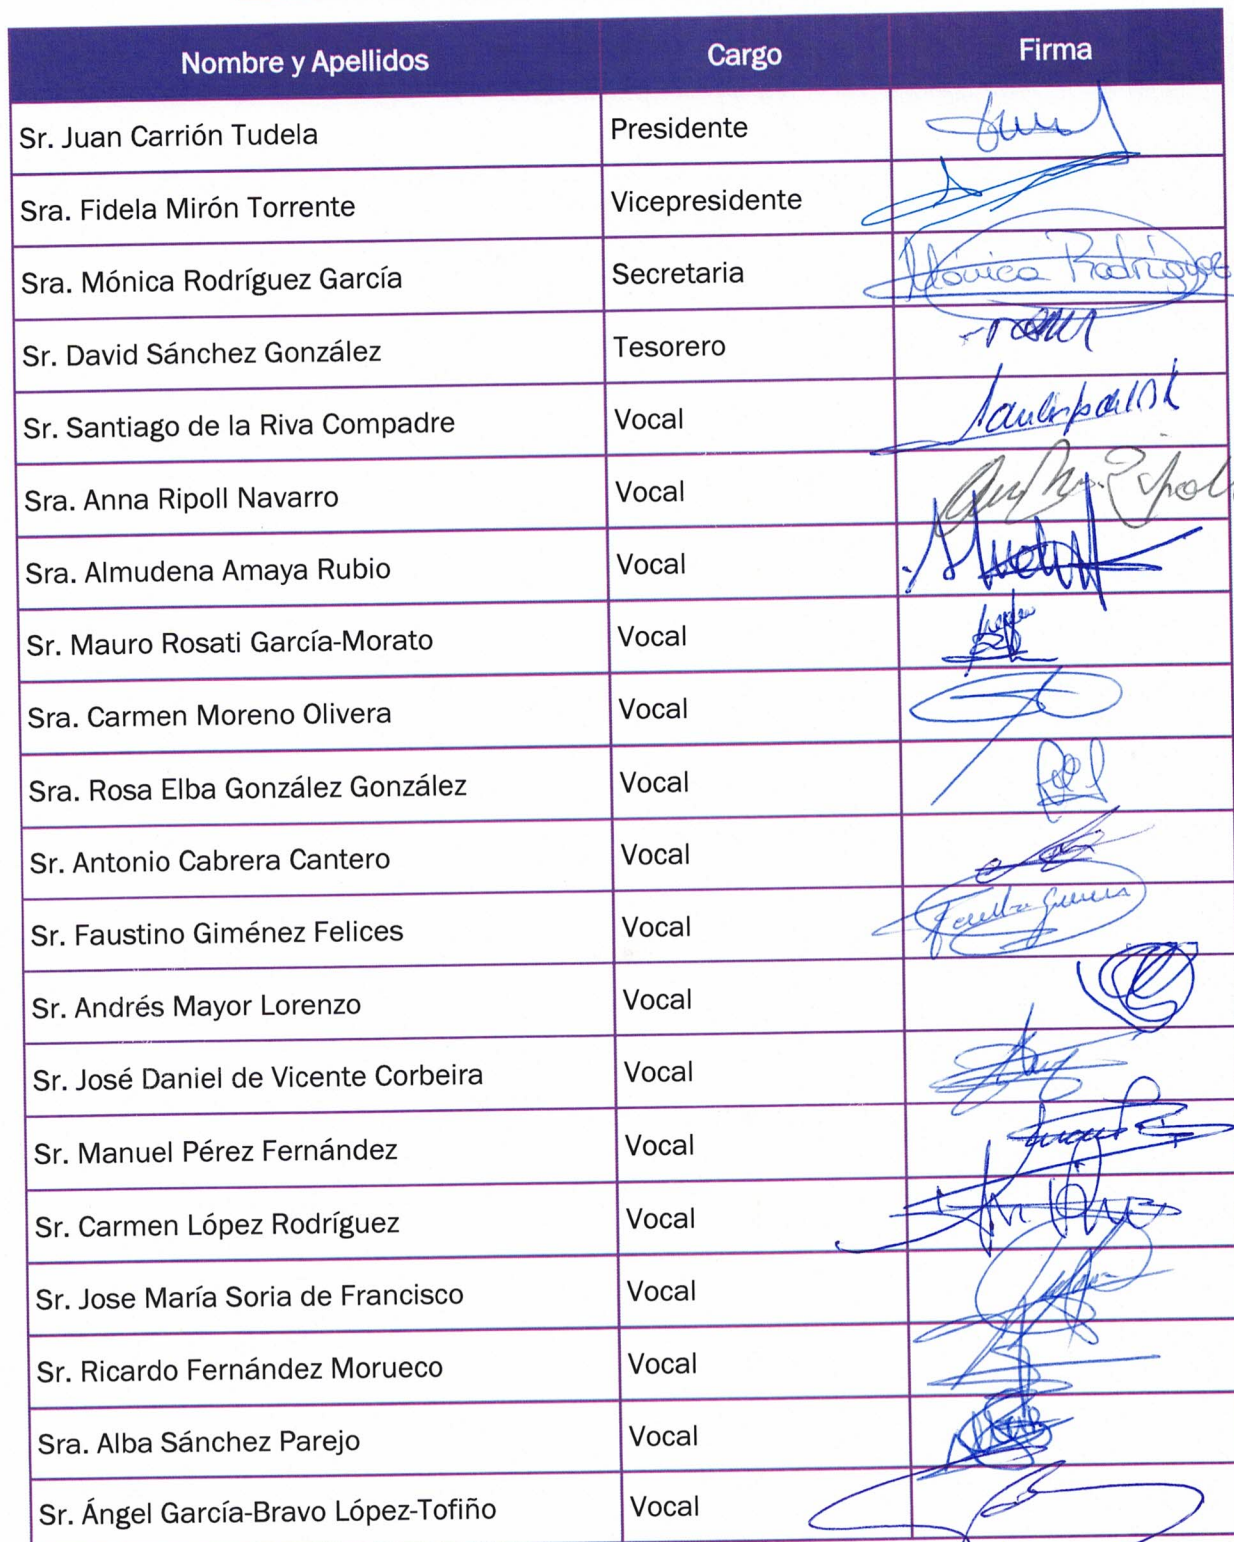 Nombre y Apellidos Cargo Firma
Sr. Juan Carrión Tudela Presidente
Sra. Fidela Mirón Torrente Vicepresidente
Sra. Mónica Rodríguez García Secretaria Mónica Rodríguez
Sr. David Sánchez González Tesorero
Sr. Santiago de la Riva Compadre Vocal
Sra. Anna Ripoll Navarro Vocal
Sra. Almudena Amaya Rubio Vocal
Sr. Mauro Rosati García-Morato Vocal
Sra. Carmen Moreno Olivera Vocal
Sra. Rosa Elba González González Vocal
Sr. Antonio Cabrera Cantero Vocal
Sr. Faustino Giménez Felices Vocal
Sr. Andrés Mayor Lorenzo Vocal
Sr. José Daniel de Vicente Corbeira Vocal
Sr. Manuel Pérez Fernández Vocal
Sr. Carmen López Rodríguez Vocal
Sr. Jose María Soria de Francisco Vocal
Sr. Ricardo Fernández Morueco Vocal
Sra. Alba Sánchez Parejo Vocal
Sr. Ángel García-Bravo López-Tofiño Vocal